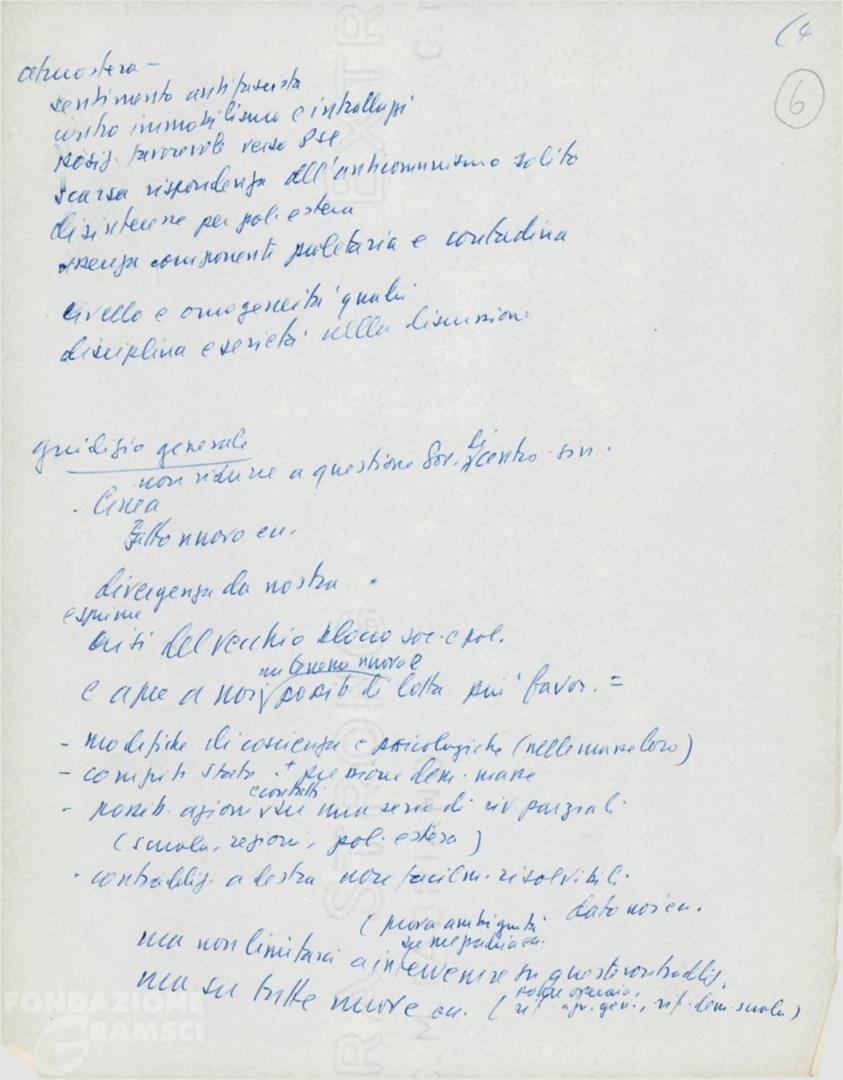 (4
6
atmosfera -
sentimento antifascista
contro immobilismo e intrallazzi
posiz. favorevole verso PSI
scarsa rispondenza all'anticomunismo solito
disinteresse per pol. estera
assenza componenti proletaria e contadina
livello e omogeneità quadri
disciplina e serietà nella discussione
giudizio generale
non ridurre a questione Gov. di centro-sin.
- linea
fatto nuovo
divergenza da nostra
esprime
crisi del vecchio blocco soc. e pol.
su terreno nuovo e
e apre a noi possib. di lotta più favor. =
- modifiche di coscienza e psicologiche (nelle masse loro)
- compiti Stato + pressione dem. masse
e contatti
- possib. azione su una serie di riv. parziali
(scuola, regioni, pol. estera)
- contraddiz. a destra non facilm. risolvibili
(prova ambiguità dato noi
ma non limitarci a intervenire su queste contraddiz.
ma su tutte nuove (
rif. agr. gen., rif. dem. scuola)
FONDAZIONE
GRAMSCI
EXTRA STRONG